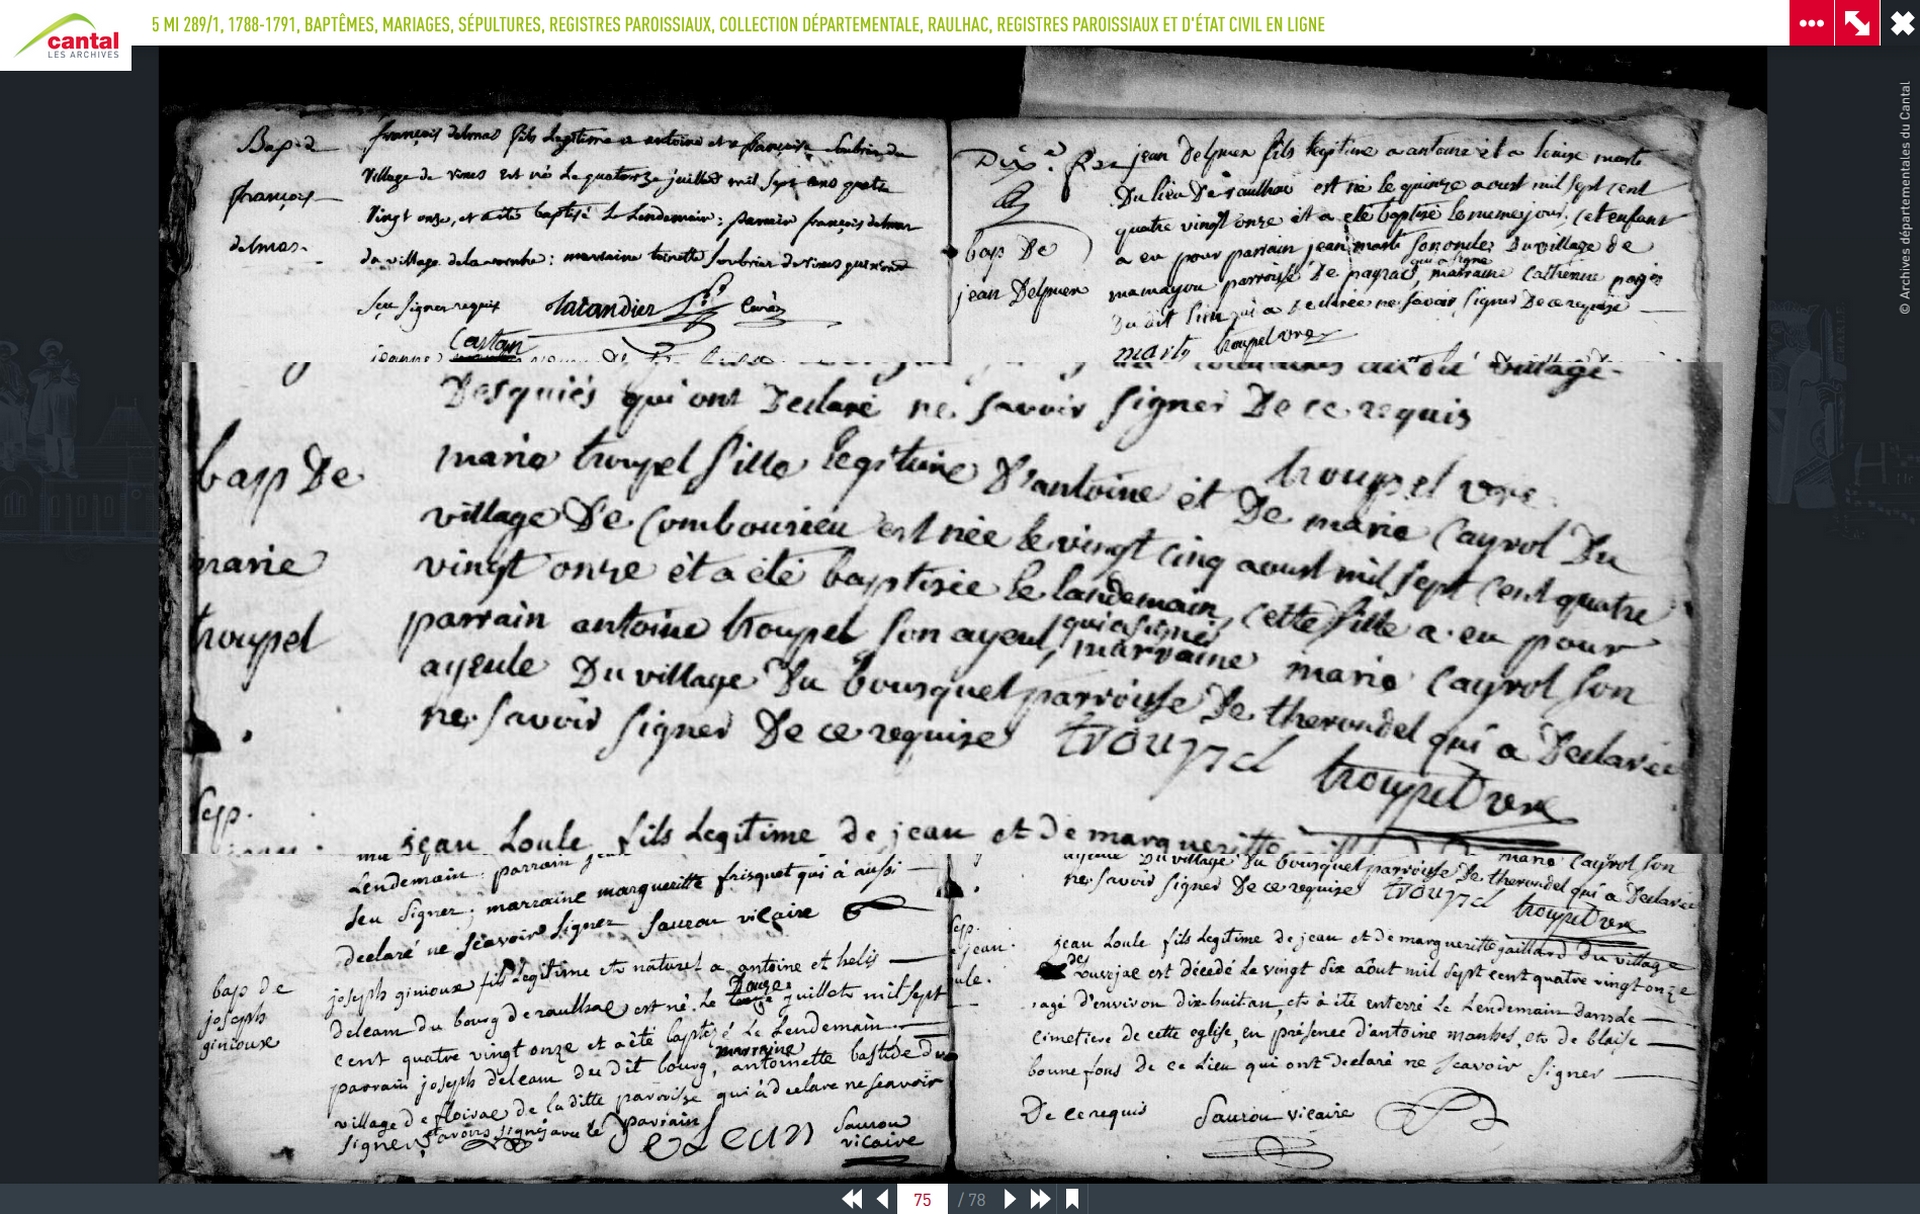 cantal
LES ARCHIVES
5 MI 289/1, 1788-1791, BAPTÊMES, MARIAGES, SÉPULTURES, REGISTRES PAROISSIAUX, COLLECTION DÉPARTEMENTALE, RAULHAC, REGISTRES PAROISSIAUX ET D'ÉTAT CIVIL EN LIGNE
© Archives départementales du Cantal
Bap. d
françois
delmas.
françois delmas fils legitime a antoine et a françoise Soubrier du
village de vines est nés le quatorze juillet mil sept cens quatre
vingt onze, et a été baptisé le lendemain; parrain françois delmas
du village : marraine toinette soubrier de vines qui n'ont
seu signer requis
Castan
Dix. R jean Delpuer fils legitime a antoine et a louise marti
bap De
jean Delpuer
Du lieu De raulhac est né le quinze aoust mil sept cent
quatre vingt onze et a été baptisé le meme jour. Cet enfant
a eu pour parrain jean marti son oncle Du village de
mamayou parroisse De payrac, qui a signé marraine Catherine pages
Du dit lieu qui a Declarée ne savoir signer De ce requise
marti troupel vre
village
Desquiés qui ont Declaré ne savoir signer De ce requis
troupel vre
bap De
marie
troupel
marie troupel fille legitime D'antoine et De marie Cayrol Du
village De Combourieu est née le vingt cinq aoust mil sept Cent quatre
vingt onze et a eté baptisée le landemain, Cette fille a eu pour
parrain antoine troupel son ayeul, qui a signé marraine marie Cayrol son
ayeule Du village Du bousquet parroisse De therondel qui a Declarée
ne savoir signer De ce requise troupel
troupel vre
sep.
jean Loule fils Legitime de jean et De margueritte
Lendemain. parrain
seu signer; marraine margueritte frisquet qui à aussi
declaré ne scavoir signer Saurou vicaire
bap de
joseph
ginioux
joseph ginioux fils legitime et naturel a antoine et helis
deleam du bourg de raulhac est né. Le Douze juillet mil sept
cent quatre vingt onze et a été baptezé Le Lendemain
parrain joseph deleam du dit bourg, marraine antoinette bastide du
village de floirac de la ditte parroisse qui à declare ne scavoir
signer, et avons signé avec le parrain
Saurou
vicaire
mario Cayrol son
ayeule Du village Du bousquet parroisse De therondel qui a Declarée
ne savoir signer De ce requise troupel
troupel vre
sep.
jean.
ule.
jean Loule fils Legitime de jean et de margueritte gaillard du village
de Louvejac est décedé Le vingt six aôut mil sept cent quatre vingt onze
agé d'environ dix huit an, et à été enterré Le Lendemain dans le
cimetiere de cette eglise, en présence d'antoine manhes, et de blaise
bonnefons de ce Lieu qui ont declaré ne scavoir signer
De ce requis Saurou vicaire
75 / 78